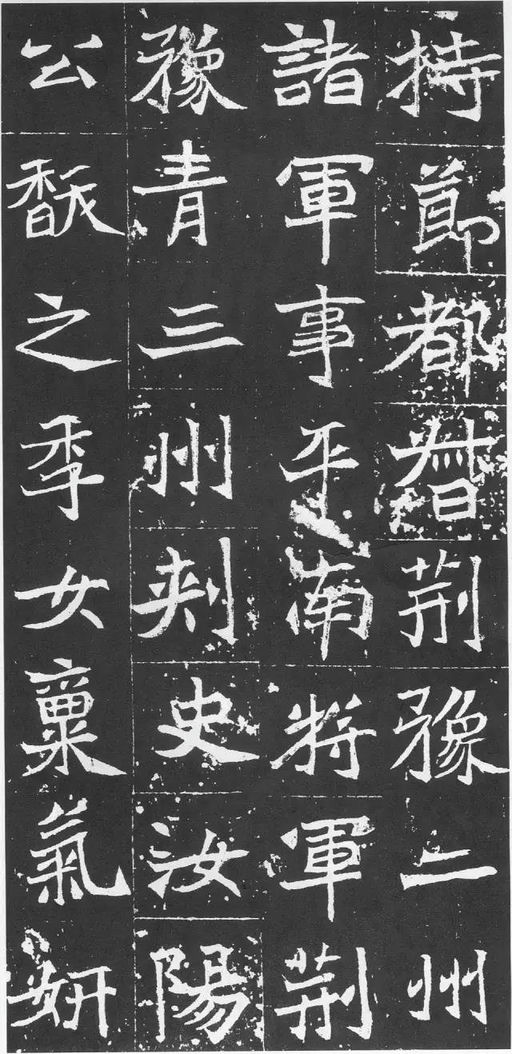 持節都督荊豫二州
諸軍事平南將軍荊
豫青三州刾史汝陽
公馛之季女稟氣妍